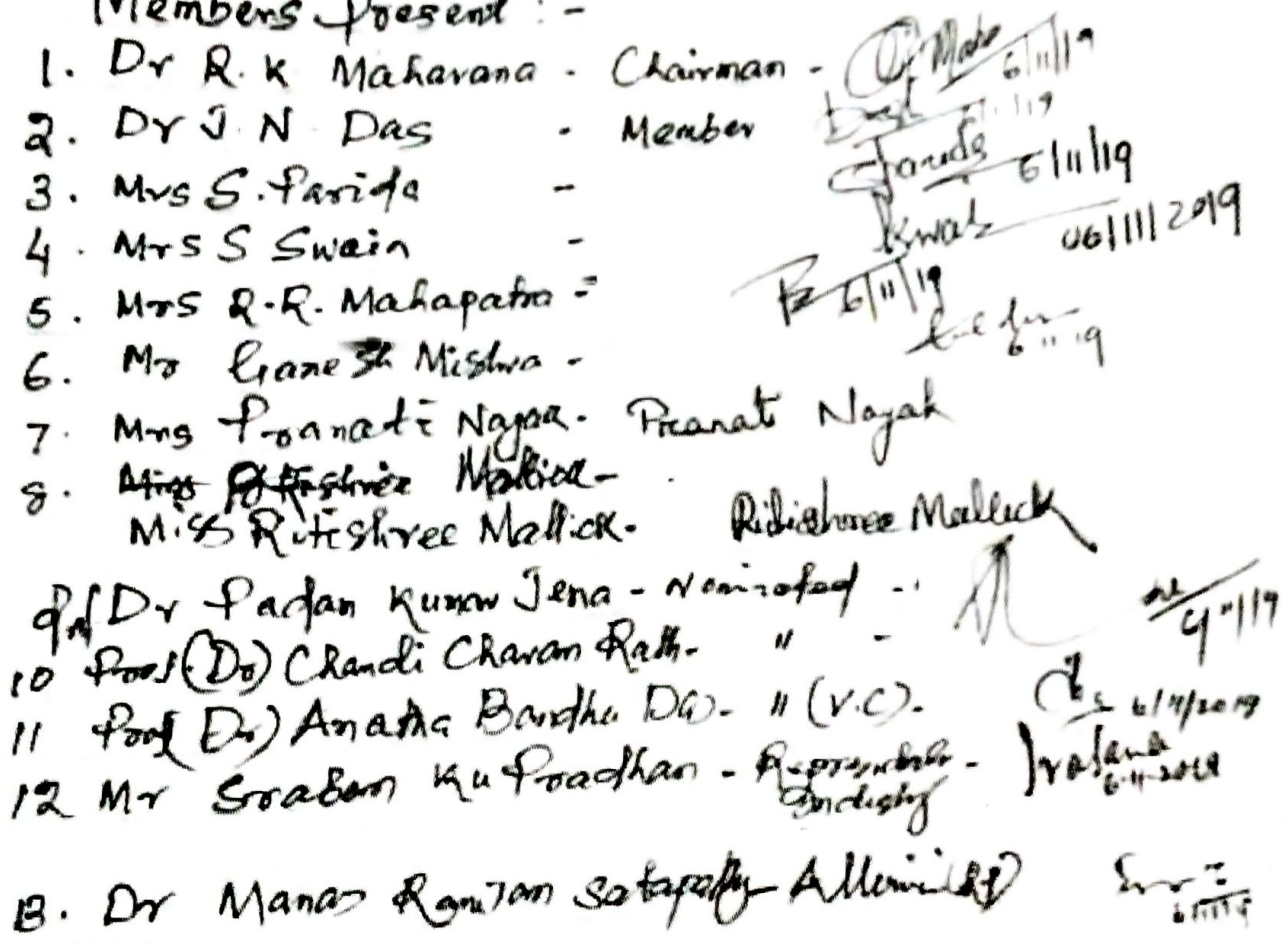 Members Present : -
1. Dr R. K Maharana - Chairman - 6/11/19
2. Dr J. N Das - Member
3. Mrs S. Parida - 6/11/19
4. Mrs S Swain - 06/11/2019
5. Mrs R.R. Mahapatra - 6/11/19
6. Mr Ganesh Mishra - 6 11 19
7. Mrs Pranati Nayak - Pranati Nayak
8. Mallick -
Miss Ritishree Mallick - Ritishree Mallick
9 Prof Dr Padan Kumar Jena - Nominated -
10 Prof (Dr) Chandi Charan Rath - " -
11 Prof (Dr) Anatha Bandhu Das - " (V.C). 6/11/2019
12 Mr Sraban Ku Pradhan - Industry - 6-11-2019
13. Dr Manas Ranjan Satapathy Allumini